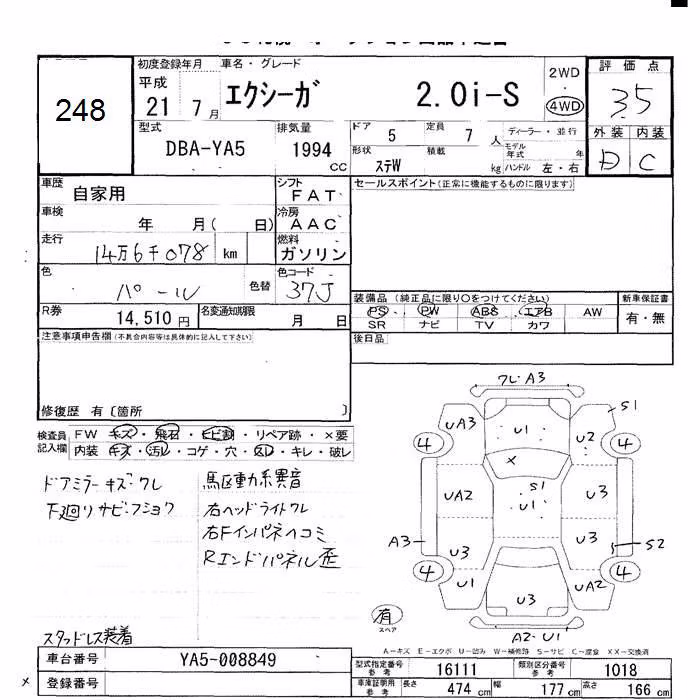 248
初度登録年月 車名・グレード
平成 21 7月 エクシーガ 2.0i-S
2WD
4WD
評価点
3.5
外装 内装
D C
型式 排気量 ドア 5 定員 7 人 ディーラー・並行
DBA-YA5 1994 CC 形状 ステW 積載 kg モデル年式 年
ハンドル 左・右
車歴 自家用 シフト FAT セールスポイント(正常に機能するものに限ります)
車検 年 月( 日) 冷房 AAC
走行 14万6千078 km 燃料 ガソリン
色 パール 色替 色コード 37J
R券 14,510円 名変通知期限 月 日
装備品 (純正品に限り○をつけてください) 新車保証書
PS PW ABS エアB AW 有・無
SR ナビ TV カワ
注意事項申告欄(不具合内容等は具体的に記入して下さい) 後日品
修復歴 有〔箇所 〕
検査員記入欄 FW キズ・飛石・ヒビ割・リペア跡・×要
内装 キズ・汚レ・コゲ・穴・スレ・キレ・破レ
ドアミラーキズ・ワレ
下廻りサビ・フショク
スタッドレス装着
駆動系異音
右ヘッドライトワレ
右Fインパネヘコミ
Rエンドパネル歪
ワレ A3
UA3 U1 U2 S1
4 4
X
UA2 S1 U1 U3
A3 U3 U3 S2
4 4
U1 U3 UA2
有 スペア
A2・U1
A-キズ E-エクボ U-凹み W-補修跡 S-サビ C-腐食 XX-交換済
車台番号 YA5-008849
× 登録番号
型式指定番号 参考 16111 類別区分番号 参考 1018
車庫証明用 参考 長さ 474 cm 幅 177 cm 高さ 166 cm